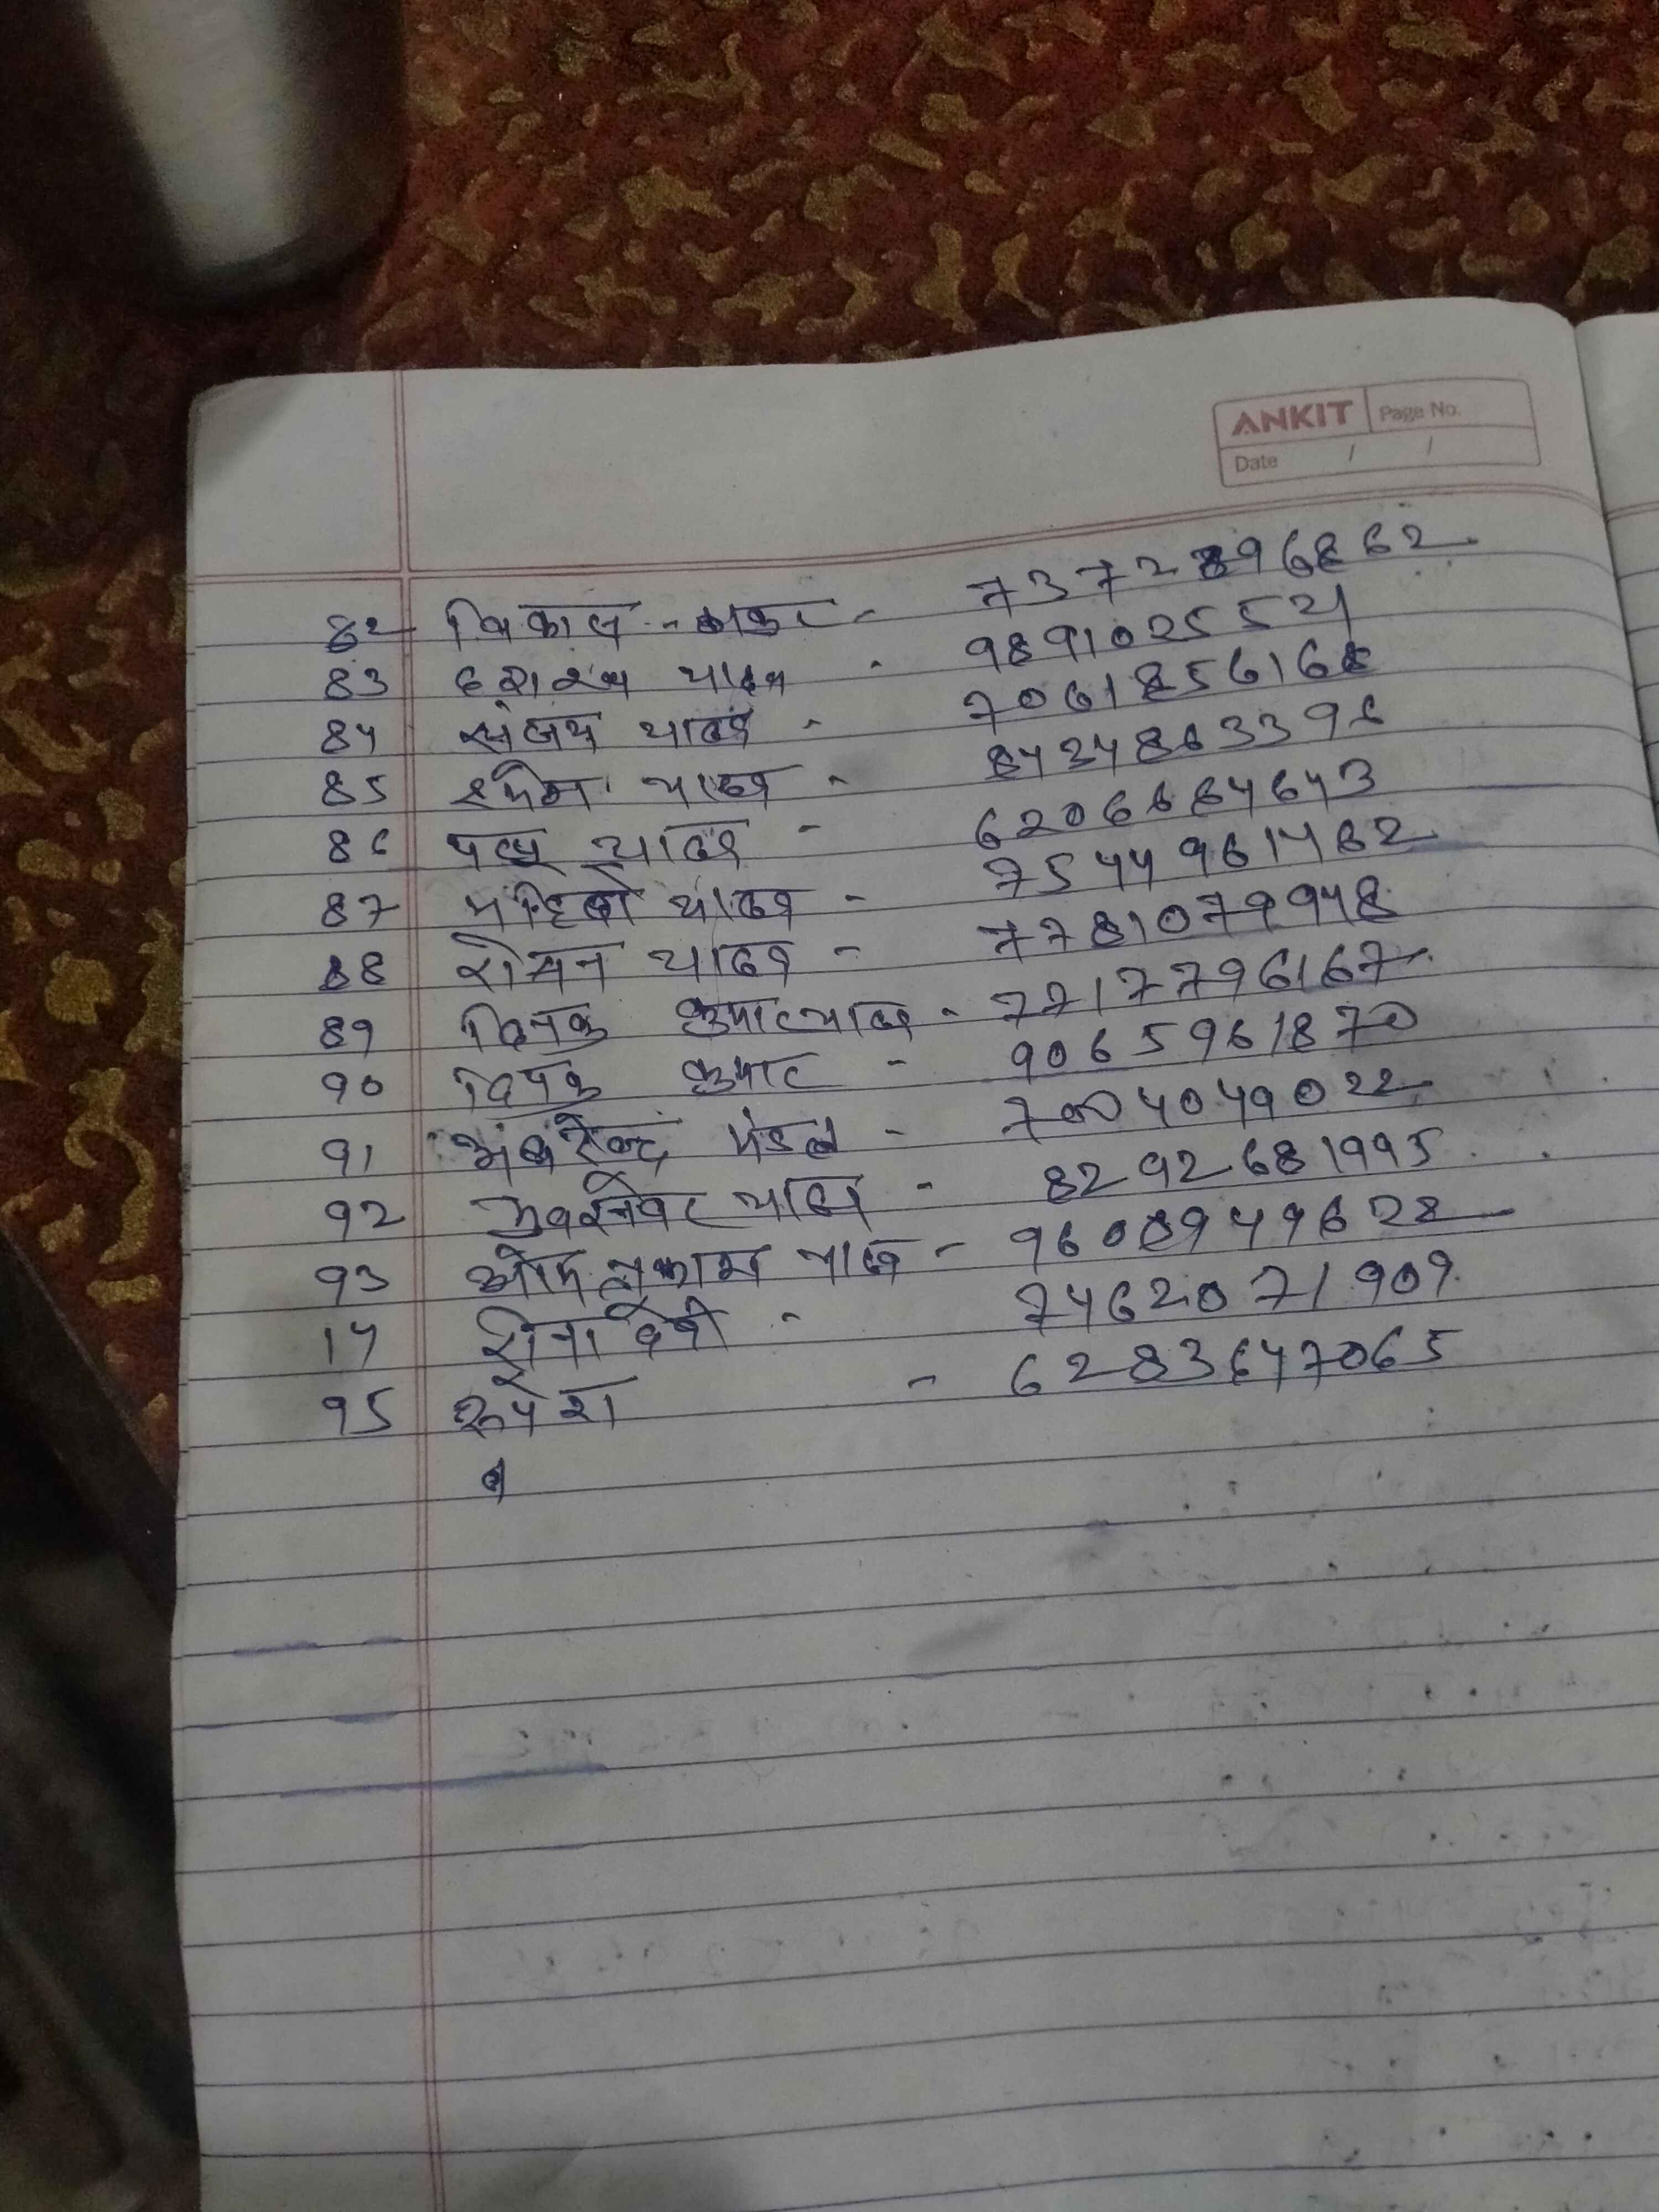 ANKIT Page No.
Date / /
82 विकास - ठाकुर - 7372896862
83 दशरथ यादव - 9891025521
84 संजय यादव - 7061856168
85 रमेश यादव - 8424863396
86 पप्पू यादव - 6206684643
87 यादव - 7544961462
88 रोसन यादव - 7781079948
89 दिपक कुमार यादव - 7717796167
90 दिपक कुमार - 9065961870
91 मंडल - 7004049022
92 यादव - 8292681995
93 ओमप्रकाश यादव - 9608949628
14 देवी - 7462071909
95 रूपेश - 6283647065